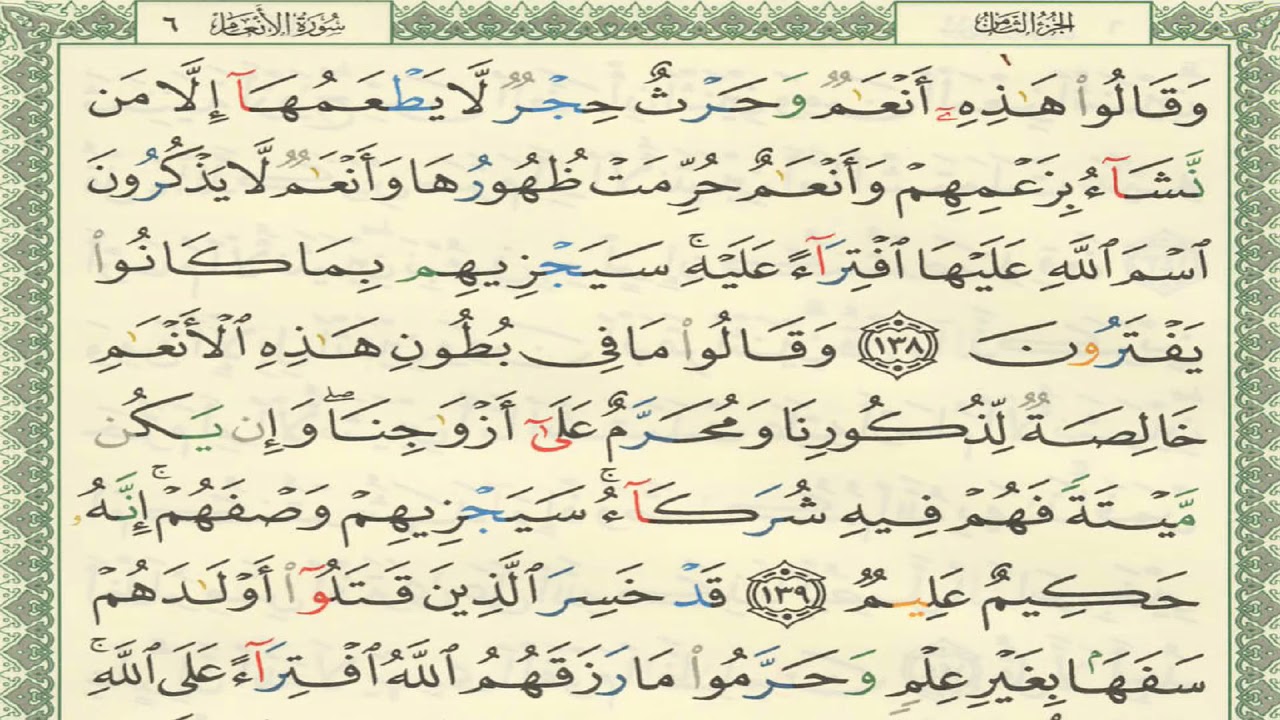 الجزء الثامن
سورة الأنعام ٦
وَقَالُوا۟ هَـٰذِهِۦٓ أَنْعَـٰمٌ وَحَرْثٌ حِجْرٌ لَّا يَطْعَمُهَآ إِلَّا مَن
نَّشَآءُ بِزَعْمِهِمْ وَأَنْعَـٰمٌ حُرِّمَتْ ظُهُورُهَا وَأَنْعَـٰمٌ لَّا يَذْكُرُونَ
ٱسْمَ ٱللَّهِ عَلَيْهَا ٱفْتِرَآءً عَلَيْهِ ۚ سَيَجْزِيهِم بِمَا كَانُوا۟
يَفْتَرُونَ ١٣٨ وَقَالُوا۟ مَا فِى بُطُونِ هَـٰذِهِ ٱلْأَنْعَـٰمِ
خَالِصَةٌ لِّذُكُورِنَا وَمُحَرَّمٌ عَلَىٰٓ أَزْوَٰجِنَا ۖ وَإِن يَكُن
مَّيْتَةً فَهُمْ فِيهِ شُرَكَآءُ ۚ سَيَجْزِيهِمْ وَصْفَهُمْ ۚ إِنَّهُۥ
حَكِيمٌ عَلِيمٌ ١٣٩ قَدْ خَسِرَ ٱلَّذِينَ قَتَلُوٓا۟ أَوْلَـٰدَهُمْ
سَفَهًۢا بِغَيْرِ عِلْمٍ وَحَرَّمُوا۟ مَا رَزَقَهُمُ ٱللَّهُ ٱفْتِرَآءً عَلَى ٱللَّهِ ۚ